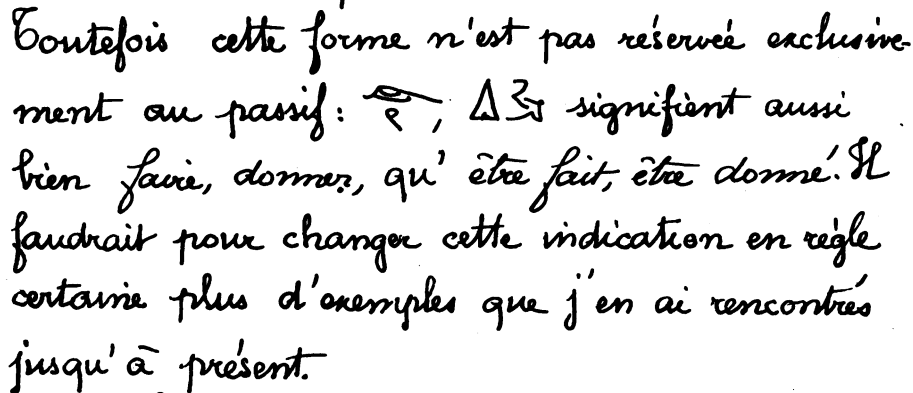 Toutefois cette forme n'est pas réservée exclusive-
ment au passif: , signifient aussi
bien faire, donner, qu' être fait, être donné. Il
faudrait pour changer cette indication en règle
certaine plus d'exemples que j'en ai rencontrés
jusqu'à présent.